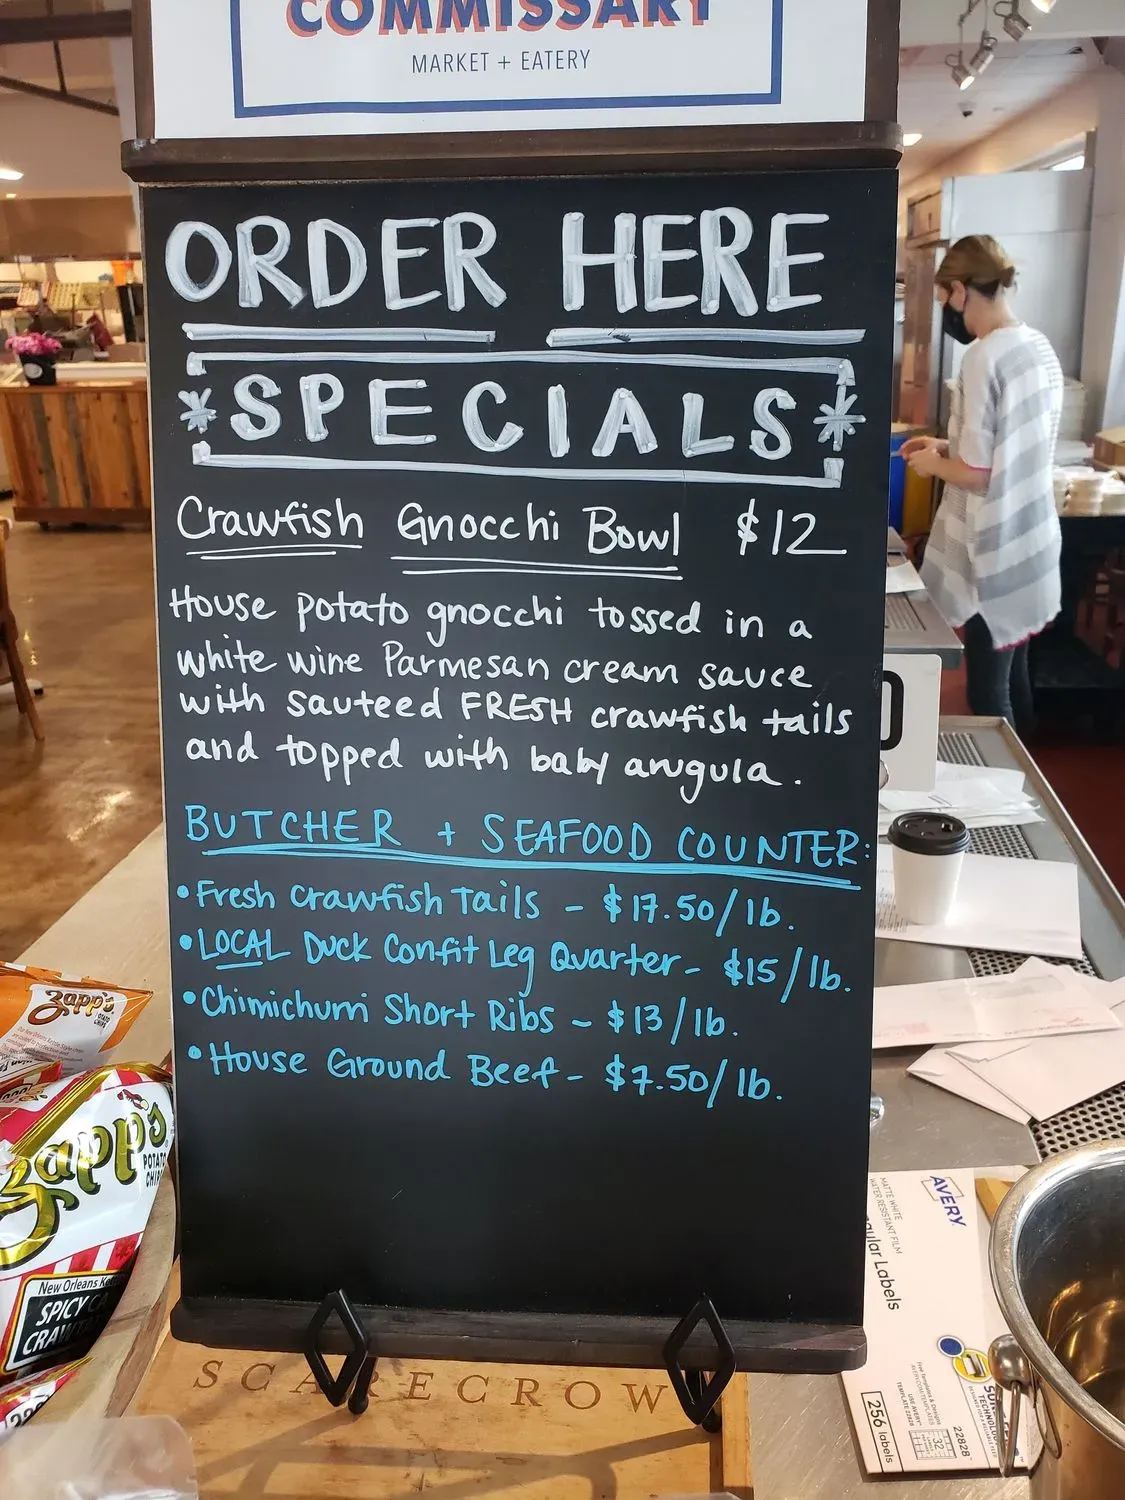 COMMISSARY
MARKET + EATERY
ORDER HERE
*SPECIALS*
Crawfish Gnocchi Bowl $12
House potato gnocchi tossed in a
white wine Parmesan cream sauce
with sauteed FRESH crawfish tails
and topped with baby arugula.
BUTCHER + SEAFOOD COUNTER:
• Fresh Crawfish Tails - $17.50/lb.
• LOCAL Duck Confit Leg Quarter - $15/lb.
• Chimichurri Short Ribs - $13/lb.
• House Ground Beef - $7.50/lb.
SCARECROW
Zapp's
POTATO CHIPS
Zapp's
POTATO
CHIPS
New Orleans
SPICY
AVERY
MATTE WHITE
WATER RESISTANT FILM
Labels
22828
256 labels